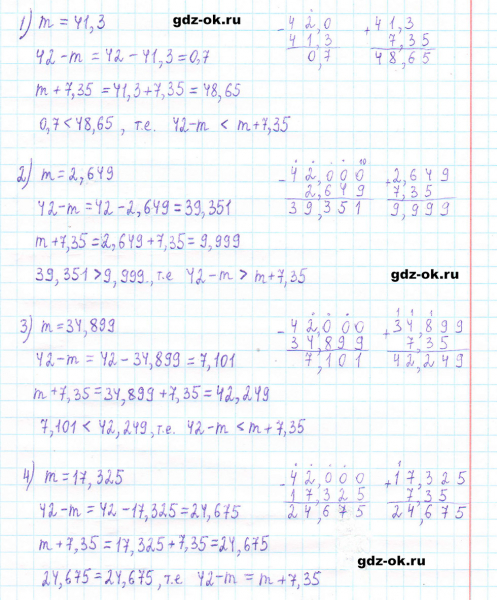 gdz-ok.ru
1) m = 41,3
42-m = 42-41,3=0,7
m+7,35 = 41,3+7,35 = 48,65
0,7 < 48,65, т.е. 42-m < m+7,35
-42,0
41,3
0,7
+41,3
7,35
48,65
2) m = 2,649
42-m = 42-2,649 = 39,351
m+7,35 = 2,649+7,35 = 9,999
39,351 > 9,999, т.е 42-m > m+7,35
10
-42,000
2,649
39,351
+2,649
7,35
9,999
gdz-ok.ru
3) m = 34,899
42-m = 42-34,899 = 7,101
m+7,35 = 34,899+7,35 = 42,249
7,101 < 42,249, т.е. 42-m < m+7,35
-42,000
34,899
7,101
1 1 1
+34,899
7,35
42,249
4) m = 17,325
42-m = 42-17,325 = 24,675
m+7,35 = 17,325+7,35 = 24,675
24,675 = 24,675, т.е 42-m = m+7,35
-42,000
17,325
24,675
1
+17,325
7,35
24,675
gdz-ok.ru